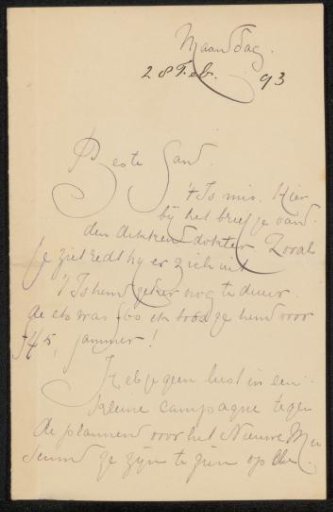 Maandag.
28 Feb. 93
Beste Sam.
't Is mis. Hier
bij het briefje van
den dokter Zooals
je ziet redt hy er zich uit
't Is hem zeker nog te duur.
de ets was f60 ik bood ze hem voor
f45, jammer!
Heb je geen lust in een
kleine campagne tegen
de plannen voor het Nieuwe Mu
seum? ze zyn te zien op